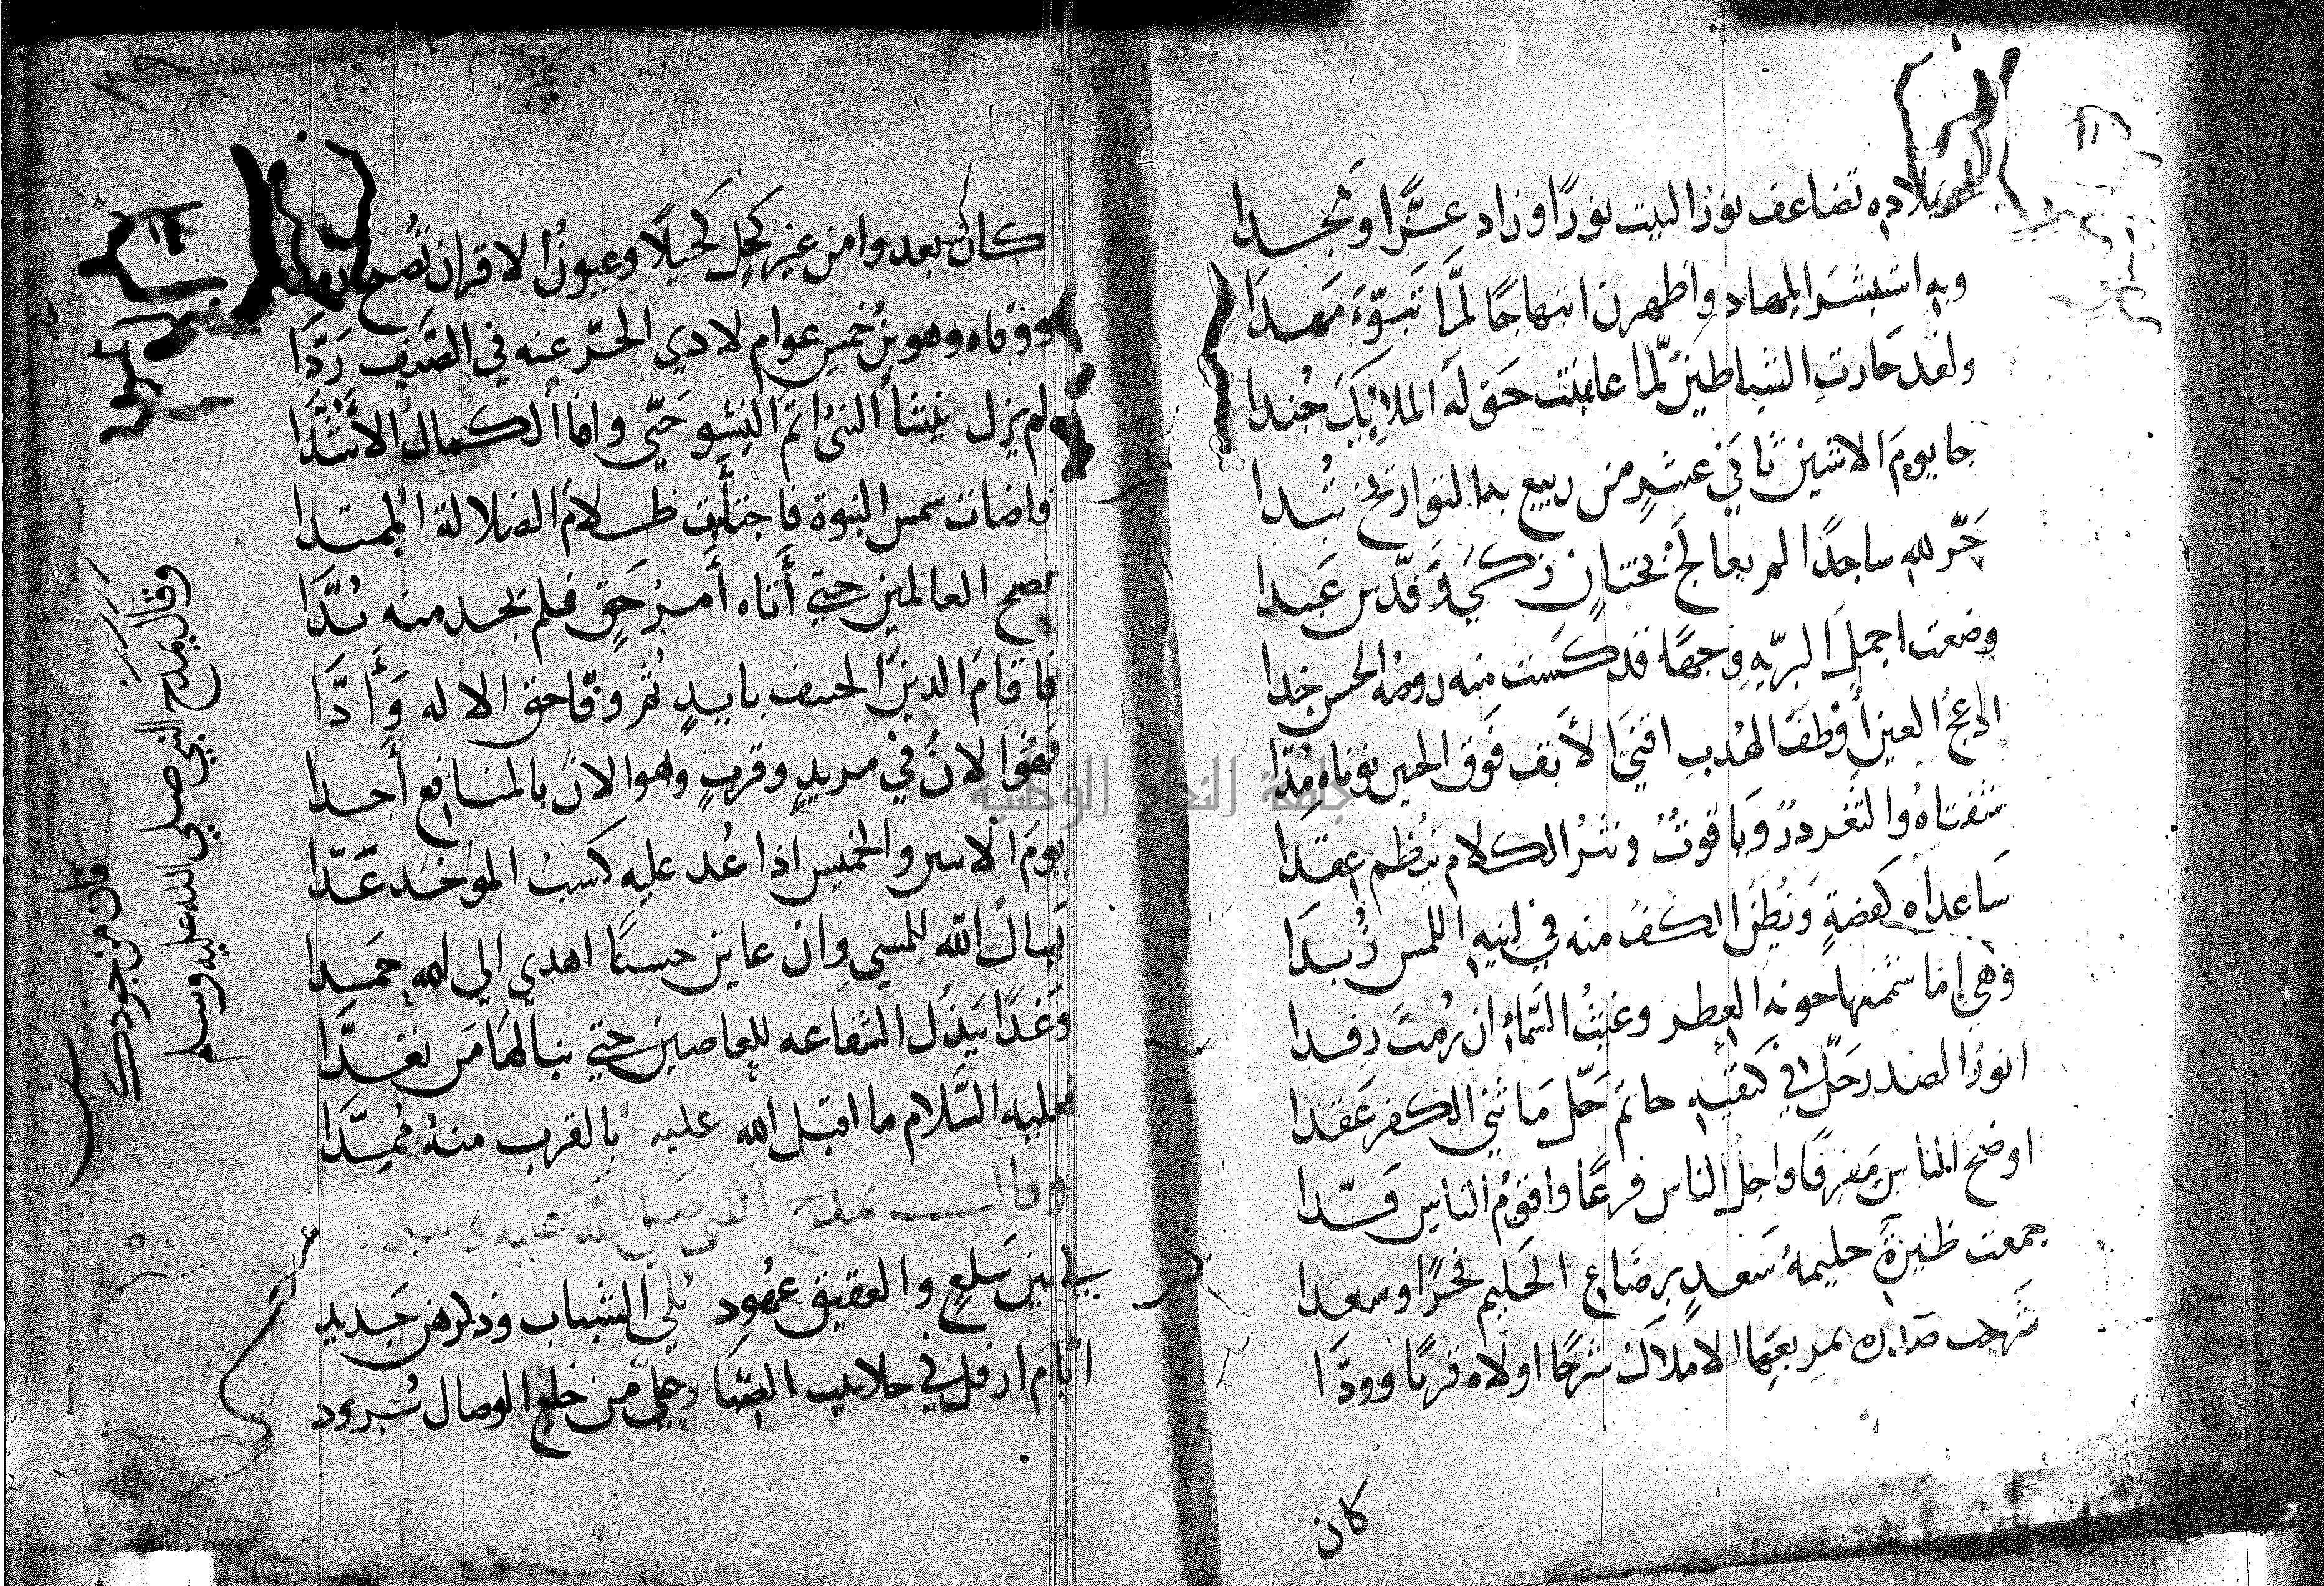 بميلاده تضاعف نور البيت نورًا وزاد عزًّا ومجدا
وبه استبشر المهاد واظهرن ابتهاجًا لمّا تبوّء مهدا
ولقد حارت الشياطين لمّا عاينت حق له الملايك جندا
جا يوم الاثنين ثاني عشر من ربيع به التواريخ تبدا
خرّ لله ساجدًا لم يعالج بختان زكي وقدّس عبدا
وضعت اجمل البريه وجهًا قد كست منه روضه الحسن خدا
ادعج العين أوطف الهدب اقني الأنف فوق الجبين نوناه مدّا
شفتاه والثغر درّ وياقوت ونثر الكلام ينظم عقدا
ساعداه كفضةٍ وبطن الكف منه في لينه اللمس زبدا
وهي اما شممتها حونه العطر وغيث السّماء ان رمت رفدا
انور الصدر حلّ في كتفيه خاتم حلّ ما ثني الكفر عقدا
اوضح الناس مفرقًا واجل الناس فرعًا واقوم الناس قدّا
جمعت ظيره حليمة سعدٍ برضاع الحليم فخرًا وسعدا
شرحت صدره بمربعها الاملاك شرحًا اولاه قربًا وودّا
كان
٣٩
كان يبعدوا من غير كحل كحيلاً وعيون الاقران تصبح رمدا
ووقاه وهو بن خمس عوام لاذي الحرّ عنه في الصّيف ردّا
لم يزل ينشأ النبي اتم النشو حتّي وافا الكمال الأشدّا
فاضات شمس النبوة فاجتأبت ظلام الضلالة الممتدا
نصح العالمين حتي أتاه أمر حقٍ فلم يجد منه بُدّا
فاقام الدين الحنيف بايدٍ ثم وفّا حق الاله وأدّا
فهو الان في مزيدٍ وقربٍ وهو الان بالمنافع أجدا
يوم الاسن والخميس اذا عُد عليه كسب الموحّد عدّا
يسال الله للمسي وان عاين حسنًا اهدي الي الله حمدا
وغدًا يبذل الشفاعه للعاصين حتي ينالها من تعدّا
فعليه السّلام ما اقبل الله عليه بالقرب منه مُمِدّا
وقال يمدح النبي صلي الله عليه وسلم
لي بين سلعٍ والعقيق عهود بلي الشباب وذكرهن جديد
ايّام ارفل في جلابيب الصّبا وعليّ من خلع الوصال برود
وقال يمدح النبي صلي الله عليه وسلم
فان من جودك